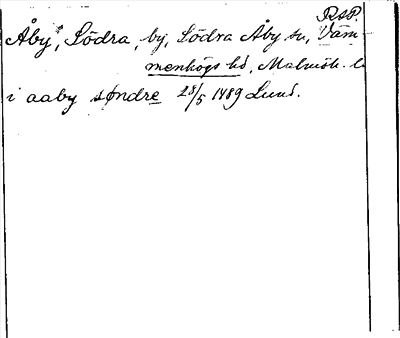 RSP.
Åby, Södra, by, Södra Åby sn, Väm-
menhögs hd, Malmöh. l
i aaby søndre 28/5 1489 Lund.